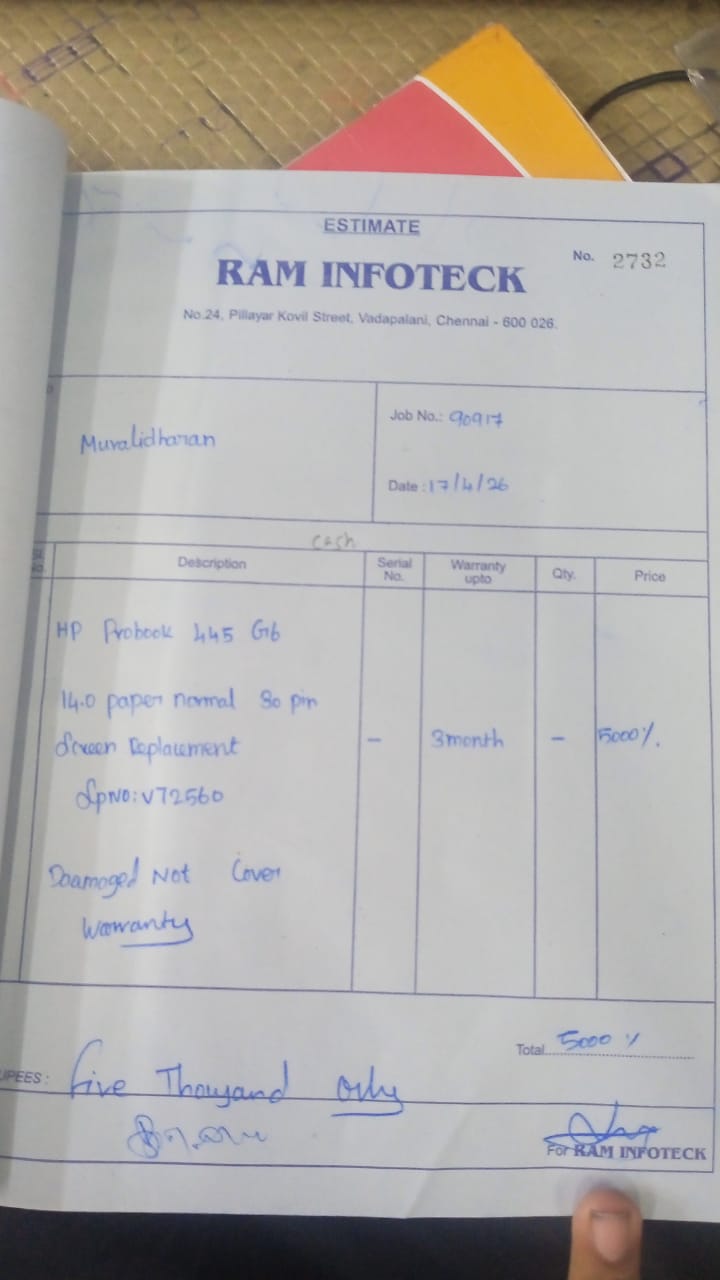 ESTIMATE
No. 2732
RAM INFOTECK
No.24, Pillayar Kovil Street, Vadapalani, Chennai - 600 026.
Muralidharan
Job No.: 90917
Date : 17/4/26
cash
Sl. No. Description Serial No. Warranty upto Qty. Price
HP Probook 445 G6
14.0 paper normal 30 pin
Screen Replacement - 3month - 5000/.
SpNO: V72560
Daamaged Not Cover
Warranty
Total 5000 /
UPEES : Five Thousand Only
For RAM INFOTECK